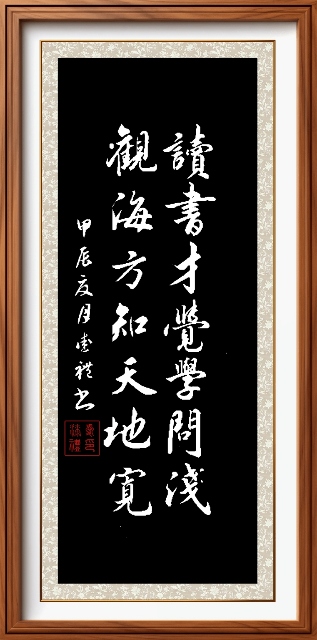 讀書才覺學問淺
觀海方知天地寬
甲辰夏月書禮书